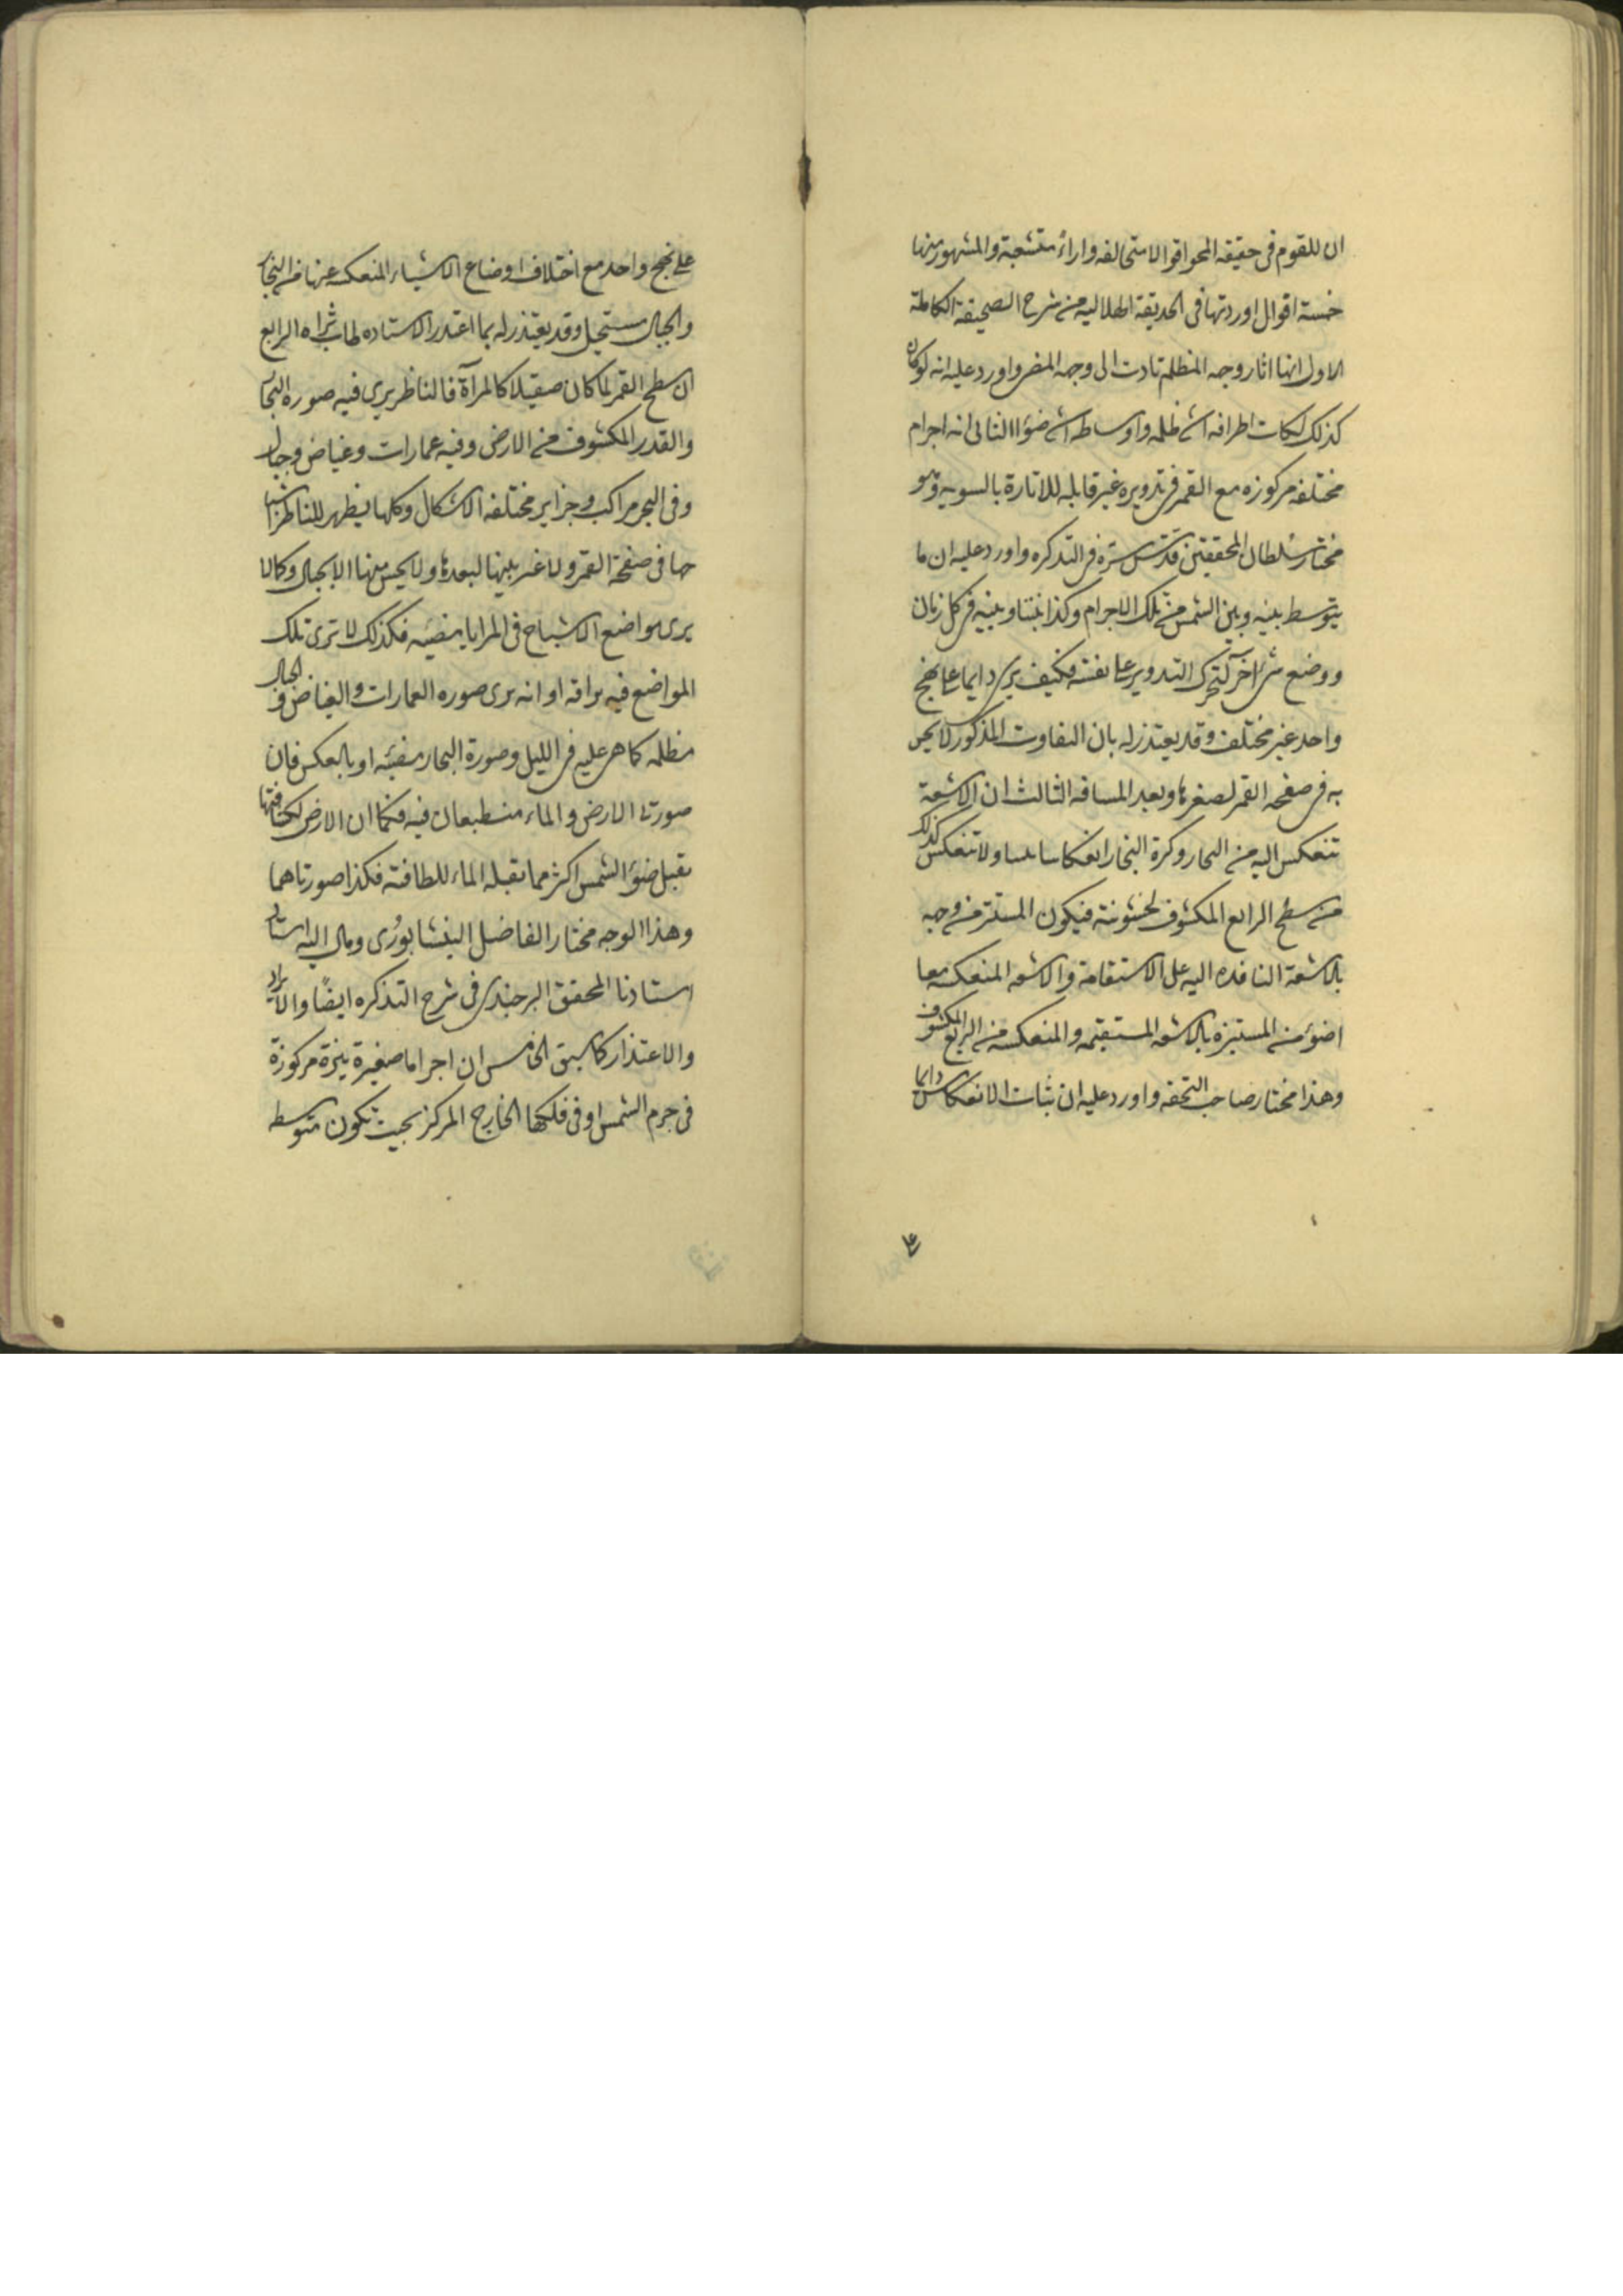 ان للقوم فى حقيقه المحو اقوالا متخالفه واراء متشعبة والمشهور منها
خمسة اقوال اوردتها فى الحديقة الهلاليه من شرح الصحيفة الكاملة
الاول انها اثار وجهه المظلم تادت الى وجهه المضى واورد عليه انه لو كان
كذلك لكانت اطرافه اشد ظلمه واوساطه اشد ضوءا الثانى انه اجرام
مختلفه مركوزه مع القمر فى تدويره غير قابله للانارة بالسويه وهو
مختار سلطان المحققين قدس سره فى التذكره واورد عليه ان ما
يتوسط بينه وبين الشمس من تلك الاجرام وكذا بيننا وبينه فى كل زمان
ووضع شئ اخر لتحرك التدوير على نفسه فكيف يرى دايما على نهج
واحد غير مختلف وقد يعتذر له بان التفاوت المذكور لا يحس
به فى صفحه القمر لصغرها وبعد المسافه الثالث ان الاشعة
تنعكس اليه من البحار وكرة البخار انعكاسا بينا ولا تنعكس كذلك
من سطح الربع المكشوف لخشونته فيكون المستنير من وجهه
بالاشعة النافذه اليه على الاستقامة والاشعه المنعكسه معا
اضوء من المستنيره بالاشعه المستقيمه والمنعكسه من الربع المكشوف
وهذا مختار صاحب التحفه واورد عليه ان ثبات الانعكاس دايما
على
على نهج واحد مع اختلاف اوضاع الاشياء المنعكسه عنها من البخار
والجبال مستحيل وقد يعتذر له بما اعتذر الاستاد طاب ثراه الرابع
ان سطح القمر لما كان صقيلا كالمرآة فالناظر يرى فيه صورة البحار
والقدر المكشوف من الارض وفيه عمارات وغياض وجبال
وفى البحر مراكب وجزاير مختلفه الاشكال وكلها يظهر للناظر اشبا
حها فى صفحة القمر ولا يميز بينها لبعدها ولا يحس منها الا بخيال وكما لا
يرى مواضع الاشباح فى المرايا مضيئه فكذلك لا ترى تلك
المواضع فيه براقه او انه يرى صوره العمارات والغياض و الجبال
مظلمه كما هى عليه فى الليل وصورة البحار مضيئه او بالعكس فان
صورتا الارض والماء منطبعان فيه فكما ان الارض لكثافتها
تقبل ضوء الشمس اكثر مما تقبله الماء للطافته فكذا صورتاهما
وهذا الوجه مختار الفاضل النيشابورى ومال اليه استاد
استادنا المحقق البرجندى فى شرح التذكره ايضًا والايراد
والاعتذار كما سبق الخامس ان اجراما صغيرة نيرة مركوزة
فى جرم الشمس او فى فلكها الخارج المركز بحيث تكون متوسطه